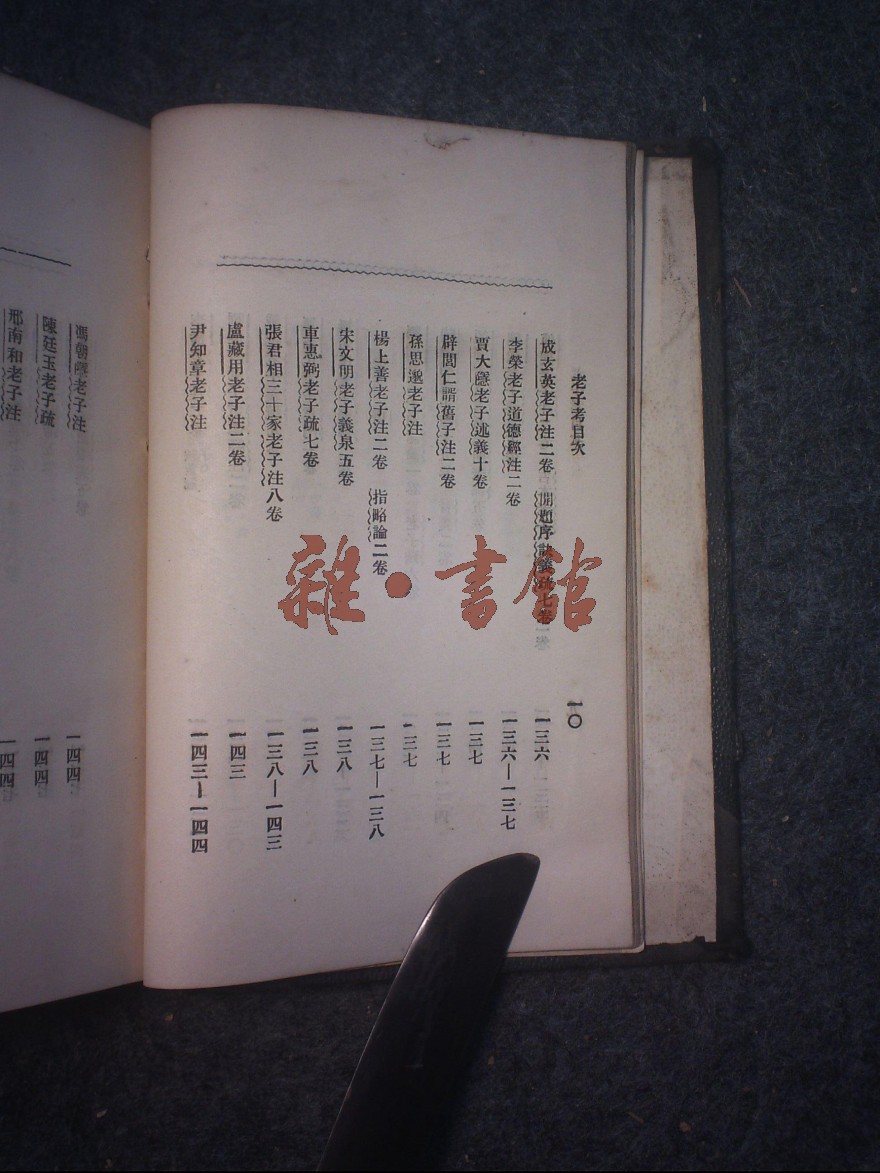 老子考目次 一〇
成玄英老子注二卷 開題序訣義疏七卷 一三六
李榮老子道德經注二卷 一三六—一三七
賈大隱老子述義十卷 一三七
辟閭仁諝舊子注二卷 一三七
孫思邈老子注 一三七
楊上善老子注二卷 指略論二卷 一三七—一三八
宋文明老子義泉五卷 一三八
車惠弼老子疏七卷 一三八
張君相三十家老子注八卷 一三八—一四三
盧藏用老子注二卷 一四三
尹知章老子注 一四三—一四四
馮朝隱老子注 一四四
陳廷玉老子疏 一四四
邢南和老子注 一四四
雜·書館